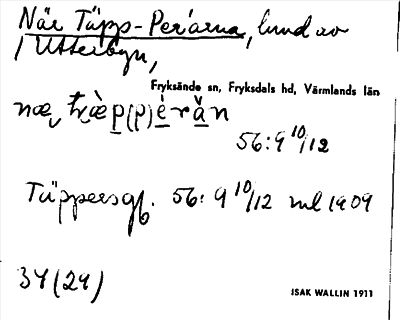 När Täpp-Per'arna, lund av
/ Utterbyn,
Fryksände sn, Fryksdals hd, Värmlands län
56:9 10/12
Täppersgb. 56: 9 10/12 ml 1909
34 (24)
ISAK WALLIN 1911